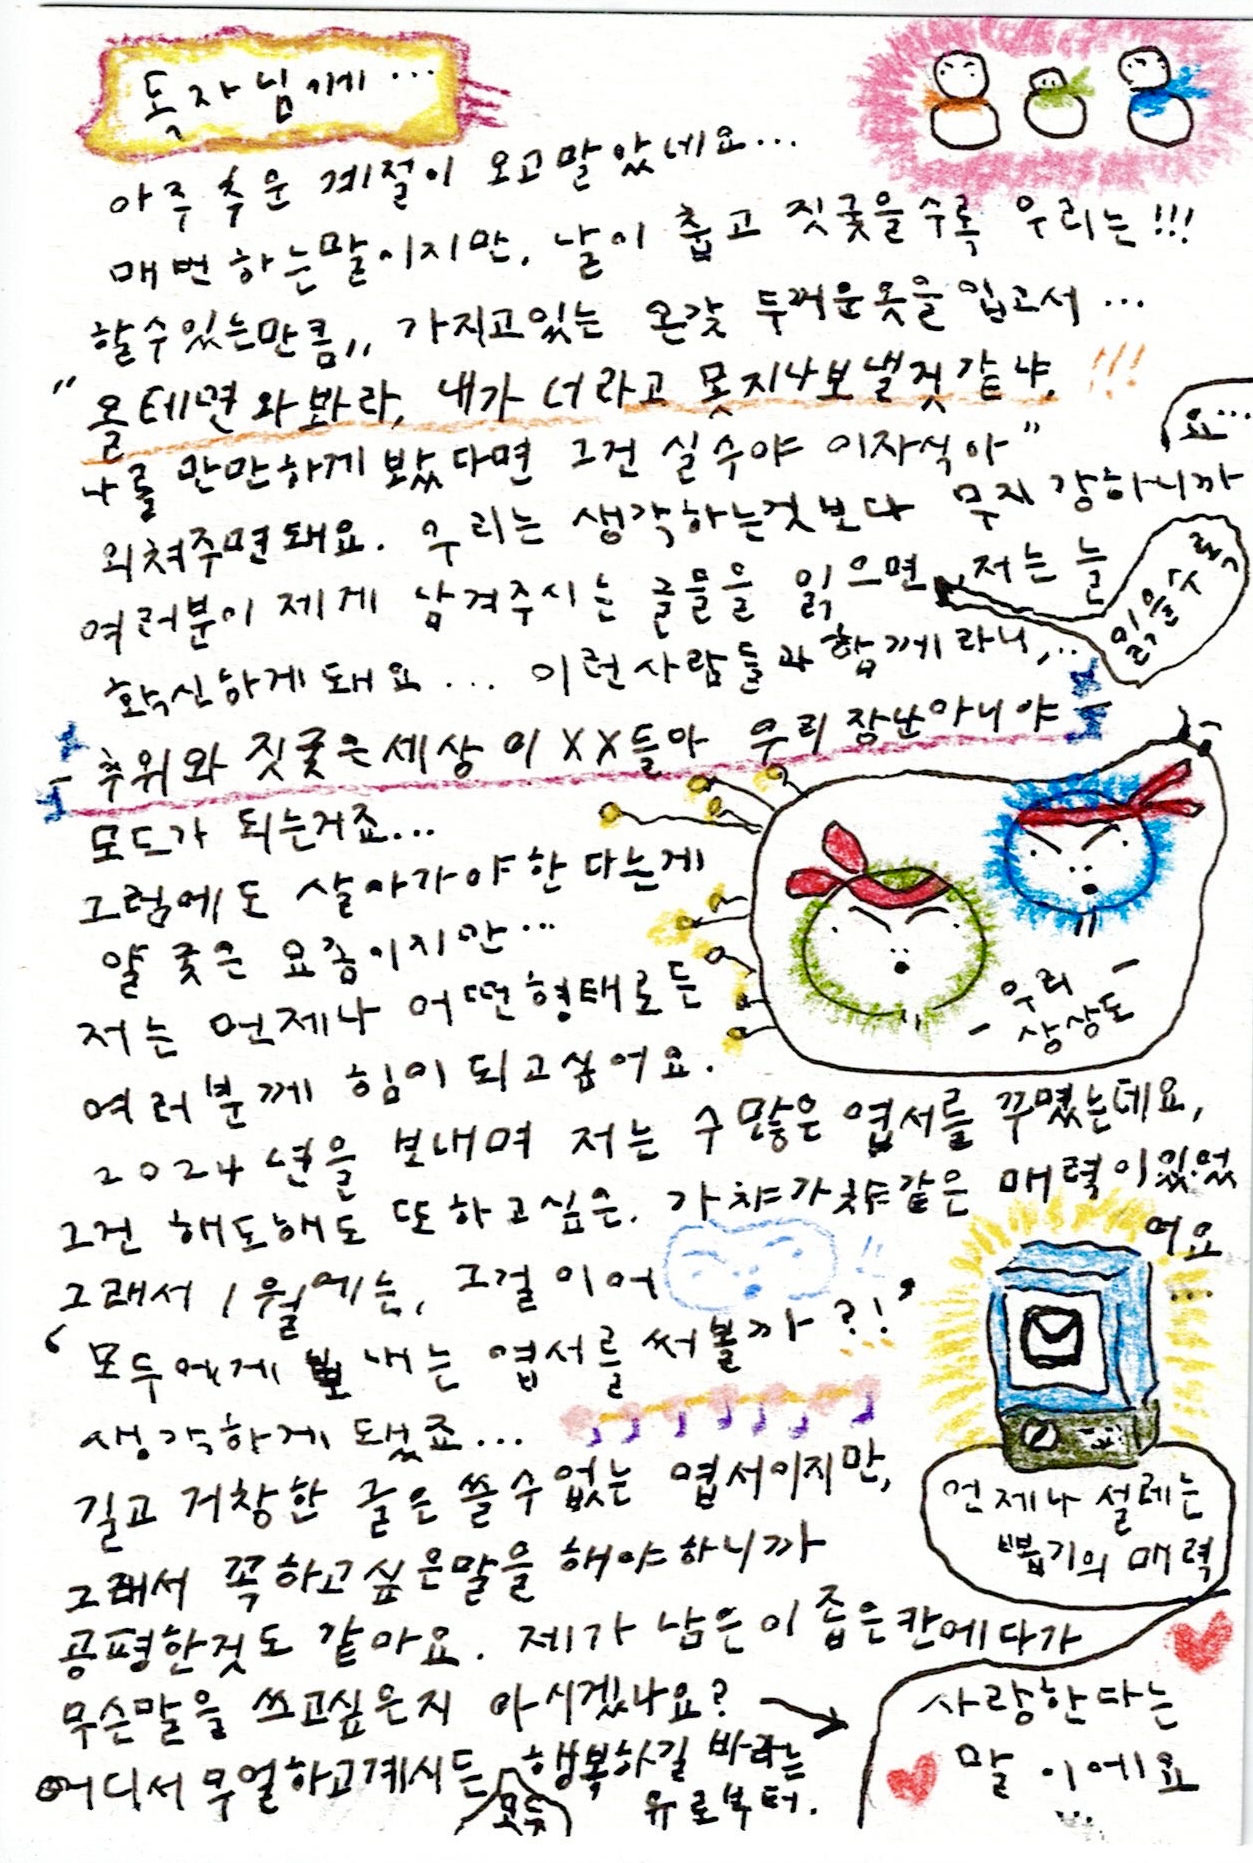 독자님께...
아주 추운 계절이 오고말았네요...
매번 하는말이지만, 날이 춥고 짓궂을수록 우리는!!!
할수있는만큼,, 가지고있는 온갖 두꺼운옷을 입고서...
"올테면 와봐라, 내가 너라고 못지나보낼것같냐, !!!
나를 만만하게 봤다면 그건 실수야 이자식아"
외쳐주면돼요. 우리는 생각하는것보다 무지 강하니까
요...
여러분이 제게 남겨주시는 글들을 읽으면, 저는 늘
읽을때 다시
확신하게돼요... 이런사람들과 함께라니,..
- 추위와 짓궂은세상 이XX들아 우리 장난아니야 -
모드가 되는거죠...
그럼에도 살아가야한다는게
얄궂은 요즘이지만...
저는 언제나 어떤형태로든
여러분께 힘이 되고싶어요.
- 우리 상상도 -
2024년을 보내며 저는 수많은 엽서를 꾸몄는데요,
그건 해도해도 또하고싶은. 가챠가챠같은 매력이있었
어요...
그래서 1월에는, 그걸 이어 !!
'모두에게 보내는 엽서를 써볼까?!'
생각하게 됐죠...
길고 거창한 글은 쓸수없는 엽서이지만,
그래서 꼭하고싶은말을 해야하니까
언제나 설레는
뽑기의 매력
공평한것도 같아요. 제가 남은이좁은칸에다가
무슨말을 쓰고싶은지 아시겠나요? →
사랑한다는
말이에요
어디서 무얼하고계시든, 모두 행복하길 바라는
유로부터.